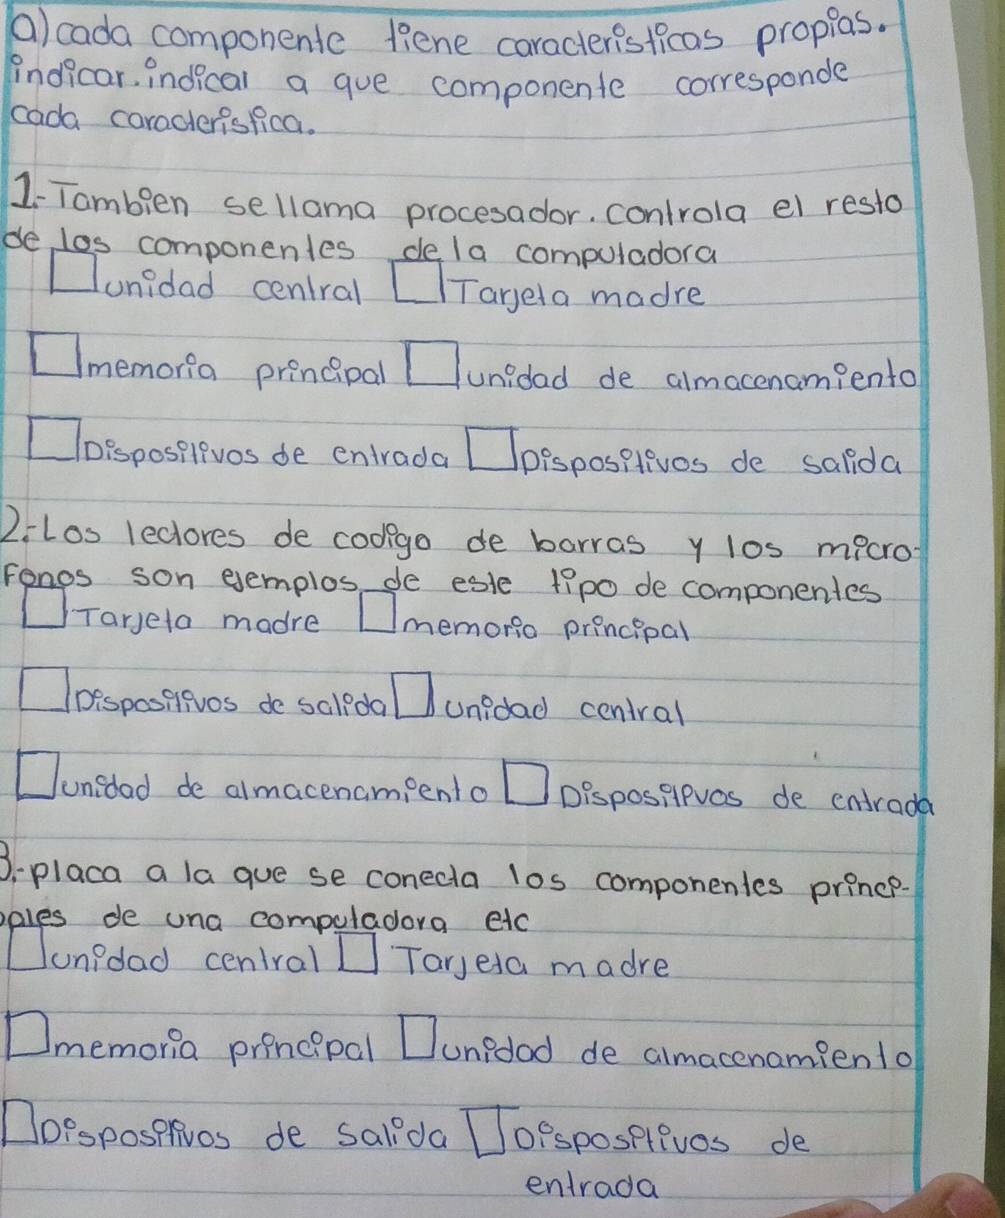 a) cada componente tiene caracteristicas propias.
indicar. indical a que componente corresponde
cada caracteristica.
1.- Tambien sellama procesador. controla el resto
de los componentes de la computadora
unidad central Tarjeta madre
memoria principal unidad de almacenamiento
Dispositivos de entrada Dispositivos de salida
2.- Los lectores de codigo de barras y los micro-
Fonos son ejemplos de este tipo de componentes
Tarjeta madre memoria principal
Dispositivos de salida unidad central
unidad de almacenamiento Dispositivos de entrada
3.- placa a la que se conecta los componentes princi-
pales de una computadora etc
unidad central Tarjeta madre
memoria principal unidad de almacenamiento
Dispositivos de salida Dispositivos de
entrada